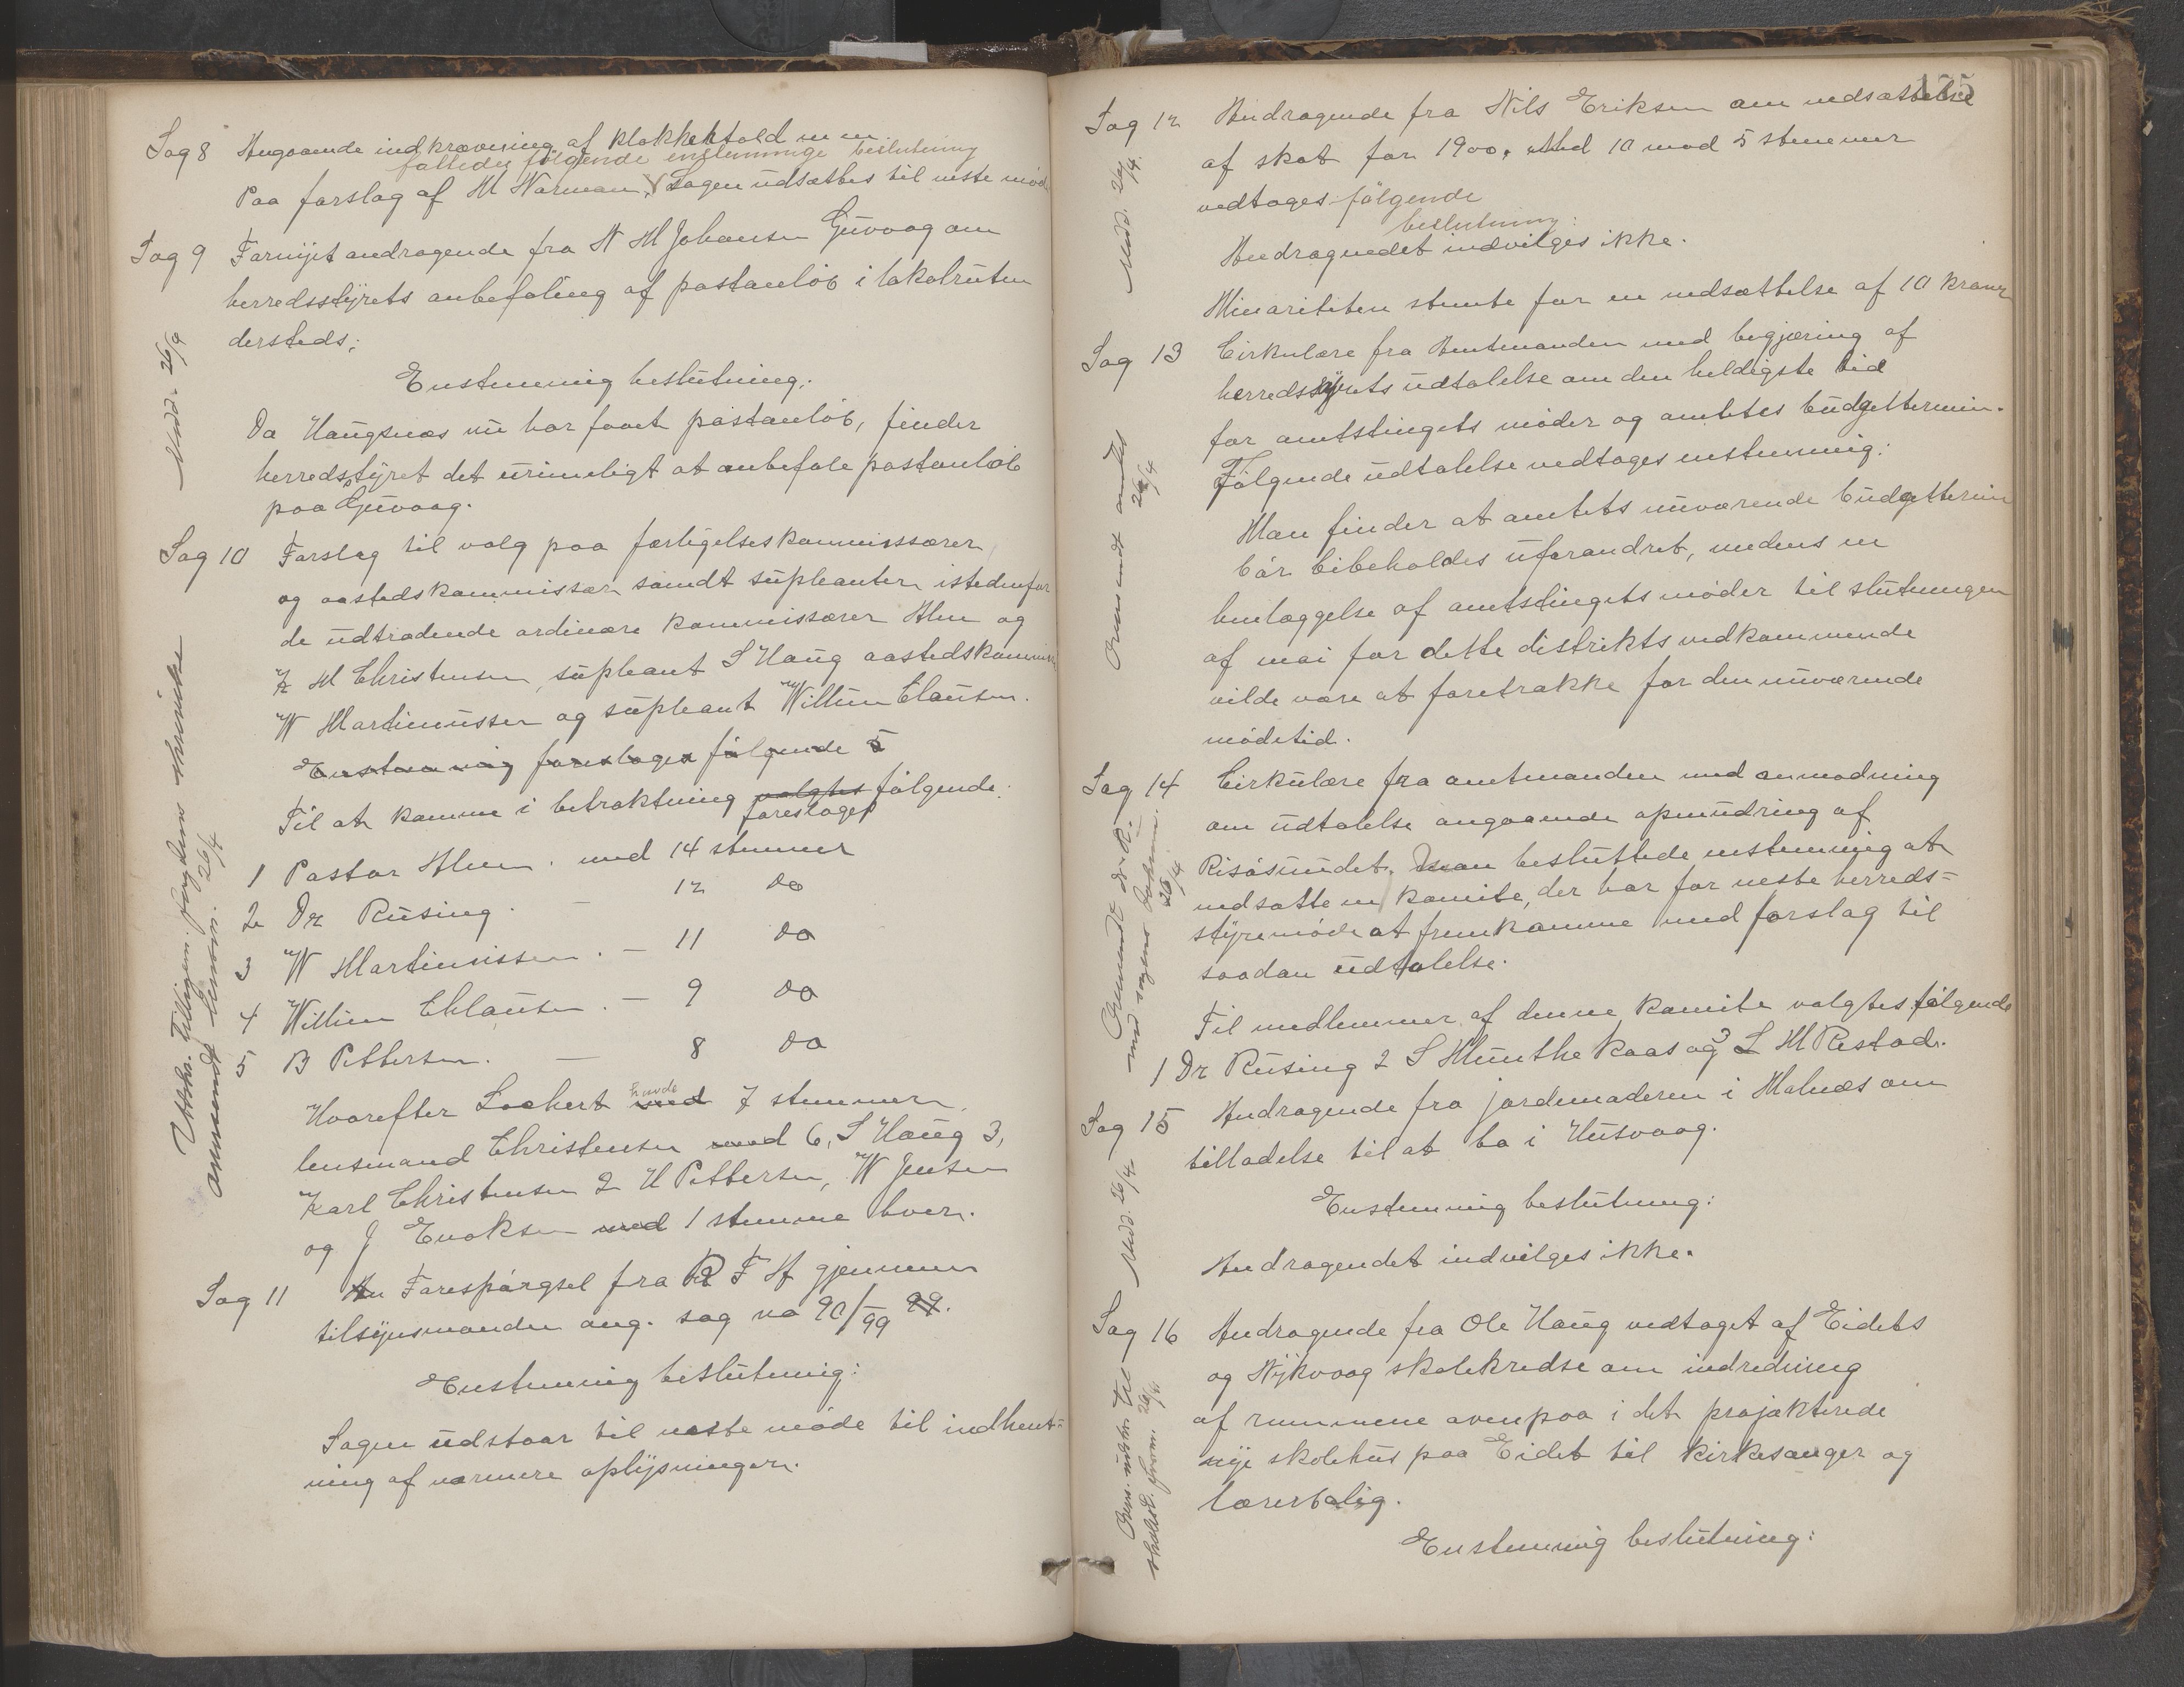 Sag 8 Angaaende indkrævning af klokketold m m.
fattedes følgende enstemmige beslutning
Paa forslag af M Norman, Sagen udsættes til neste møde
Sag 9 Fornyet andragende fra N M Johansen Guvaag om
herredsstyrets anbefaling af postanløb i lokalruten
dersteds;
Enstemmig beslutning:
Da Haugsnæs nu har faaet postanløb, finder
herredstyret det urimeligt at anbefale postanløb
paa Guvaag.
Medd. 26/4
Sag 10 Forslag til valg paa forligelseskommissærer
og aastedskommissær samdt supleanter istedenfor
de udtrædende ordinære kommissærer Alm og
K M Christensen, supleant S Haug aastedskommis
W Martinussen og supleant Willum Clausen.
Enstemmig foreslages følgende 5
Til at komme i betraktning valgtes følgende:
foreslages
1 Pastor Alm. med 14 stemmer
2 Dr Rusing. — 12 do
3 W Martinussen. — 11 do
4 Willum Clausen. — 9 do
5 B Pettersen. — 8 do
Hvorefter Lockert med 7 stemmer
havde
lensmand Christensen med 6, S Haug 3,
Karl Christensen 2 H Pettersen, W Jensen
og J Enoksen med 1 stemme hver.
26/4
Sag 11 An Forespørgsel fra R F H gjennem
tilsynsmanden ang. sag no 90/99 99.
Enstemmig beslutning:
Sagen udstaar til neste møde til indhent=
ning af nærmere oplysninger.
175
Sag 12 Andragende fra Nils Eriksen om nedsættelse
af skat for 1900. Med 10 mod 5 stemmer
vedtoges følgende
beslutning:
Andragendet indvilges ikke.
Minoriteten stemte for en nedsættelse af 10 kroner
Medd. 26/4.
Sag 13 Cirkulære fra Amtmanden med begjæring af
herredsstyrets udtalelse om den heldigste tid
for amtstingets møder og amtets budgettermin.
Følgende udtalelse vedtoges enstemmig:
Man finder at amtets nuværende budgettermin
bør bibeholdes uforandret, medens en
henlæggelse af amtstingets møder til slutningen
af mai for dette distrikts vedkommende
vilde være at foretrække for den nuværende
mødetid.
Oversendt amtet
26/4
Sag 14 Cirkulære fra amtmanden med anmodning
om udtalelse angaaende opmudring af
Risøsundet. Man besluttede enstemmig at
nedsætte en komite, der har for neste herreds=
styremøde at fremkomme med forslag til
saadan udtalelse.
Til medlemmer af denne komite valgtes følgende
1 Dr Rusing 2 S Munthe Kaas og 3 L M Restad.
Oversendt dr R.
med sagens dokum.
26/4
Sag 15 Andragende fra jordemoderen i Malnæs om
tilladelse til at bo i Husvaag.
Enstemmig beslutning:
Andragendet indvilges ikke.
Medd. 26/4
Sag 16 Andragende fra Ole Haug vedtaget af Eidets
og Nykvaag skolekredse om indredning
af rummene ovenpaa i det projekterede
nye skolehus paa Eidet til kirkesanger og
lærerbolig.
Enstemmig beslutning:
til
26/4.